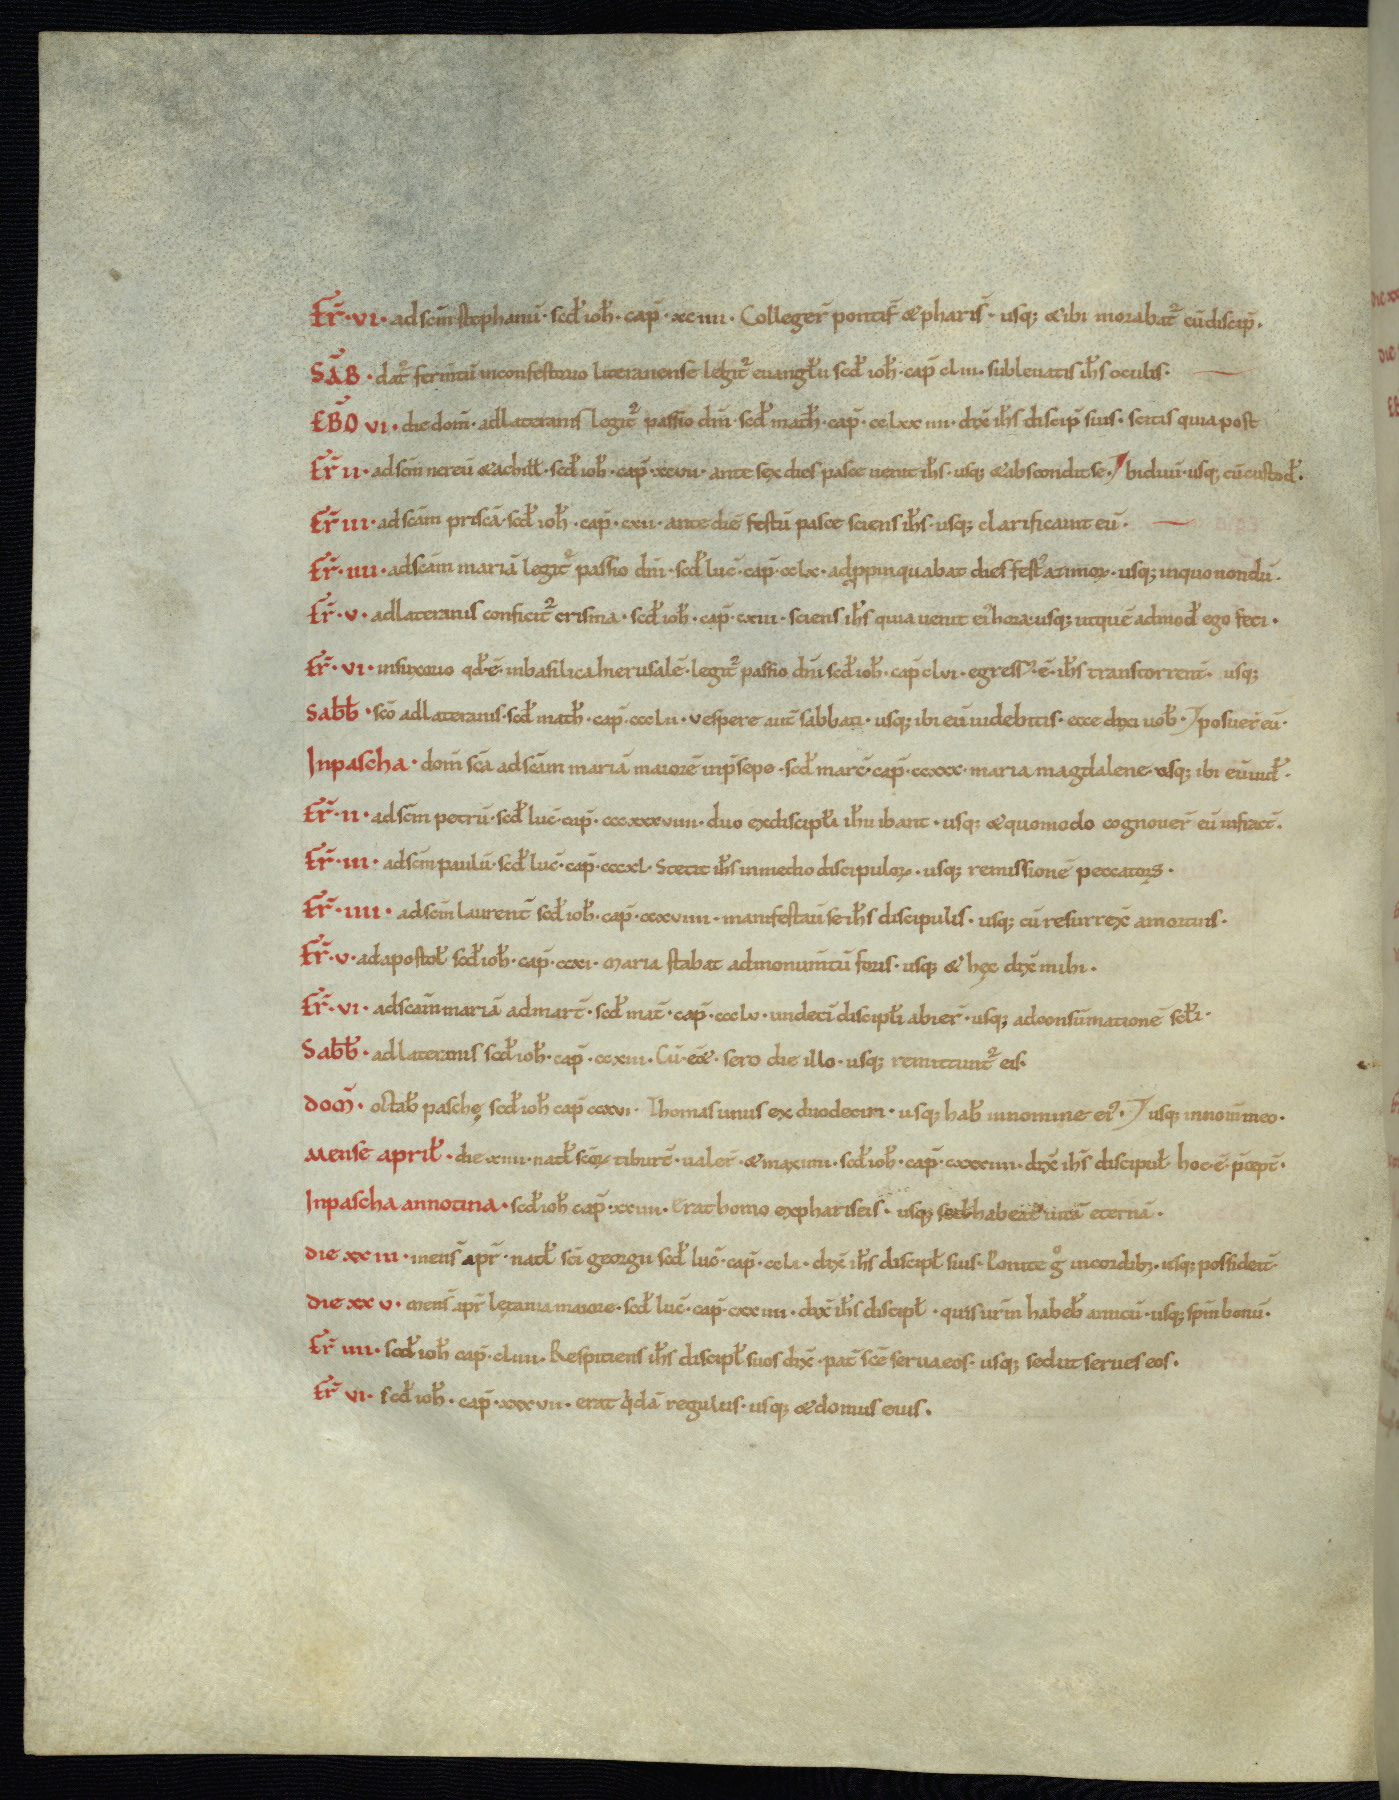 Fr̃·vi· ad sc̃m stephanũ· scd̃ ioh̃· cap̃· xciiii· Colleger̃ pontif̃ & pharis̃· usq; & ibi morabat̃ cũ discip̃·
SÃB· dat̃ferm̃tũ inconsestorio literanense legit̃ euangl̃iũ scd̃ ioh̃· cap̃ cliii· subleuatis ih̃s oculis·
EB̃D vi· die dom̃· adlateranis legit̃ passio dm̃· scd̃ math̃· cap̃· cclxxiiii· dix̃ ih̃s discip̃ suis· scitis quia post
Fr̃ ii· ad sc̃m nereũ & achill̃· scd̃ ioh̃· cap̃· xcvii· ante sex dies pasce uenit ih̃s· usq; & abscondit se· biduũ· usq; cũ custod̃·
Fr̃ iii· ad sc̃am priscã· scd̃ ioh̃· cap̃· cxii· ante diẽ festũ pasce sciens ih̃s· usq; clarificauit eũ·
Fr̃· iiii· ad sc̃am mariã legit̃ passio dñi· scd̃ luc̃· cap̃· cclx· adp̱pinquabat dies fest̃ azimoꝝ· usq; inquo nondũ·
Fr̃· v· adlateranis conficit̃ crisma· scd̃ ioh̃· cap̃· cxiii· sciens ih̃s quia uenit ei᾽ hora· usq; utquẽ admod̃ ego feci·
Fr̃· vi· insuxorio qd̃·ẽ· inbasilica hierusalẽ· legit̃ passio dñi scd̃ ioh̃· cap̃ clvi· egress᾽·ẽ· ih̃s transtorrent̃· usq;
Sabb̃· sc̃o adlateranis· scd̃ math̃· cap̃· ccclii· vespere aut̃ sabbati· usq; ibi eũ uidebitis· ecce dixi uob̃· posuer̃ eũ·
Inpascha· dom̃ sc̃a ad sc̃am mariã maiorẽ inp̃sepe· scd̃ marc̃· cap̃· ccxxx· maria magdalene· usq; ibi eũ uid̃·
Fr̃· ii· ad sc̃m petrũ· scd̃ luc̃· cap̃· cccxxxviiii· duo exdiscipl̃i ih̃u ibant· usq; & quomodo cognouer̃ eũ infract̃·
Fr̃· iii· ad sc̃m paulũ· scd̃ luc̃· cap̃· cccxl· Stetit ih̃s inmedio discipuloꝝ· usq; remissionẽ peccatoꝝ·
Fr̃· iiii· ad sc̃m laurent̃ scd̃ ioh̃· cap̃· ccxviiii· manifestauit se ih̃s discipulis· usq; cũ resurrex̃ amortuis·
Fr̃· v· adapostol̃ scd̃ ioh̃· cap̃· ccxi· Maria stabat admonum̃tũ foris· usq; & hęc dix̃ mihi·
Fr̃· vi· ad sc̃am mariã admart̃· scd̃ mat̃· cap̃· ccclv· undeci discipl̃i abier̃· usq; adconsũmationẽ scl̃i·
Sabb̃· adlateranis scd̃ ioh̃· cap̃· ccxiii· Cũ·eẽ· sero die illo· usq; remittunt̃ eis·
Dom̃· octab̃ paschę scd̃ ioh̃ cap̃ ccxvi· Thomas unus ex duodecim· usq; hab̃ innomine ei᾽· usq; innom̃ meo·
Mense april̃· die xiiii· natl̃ sc̃oꝝ tiburt̃· ualer̃· & maximi· scd̃ ioh̃· cap̃· cxxxiiii· dix̃ ih̃s discipul̃· hoc·ẽ· p̃cept̃·
Inpascha annotina· scd̃ ioh̃ cap̃· xxiiii· Erat homo expharisceis· usq; habere uitã eternã·
Die xxiii· mens̃ apr̃· natl̃ sc̃i georgii scd̃ luc̃· cap̃· ccli· dix̃ ih̃s discipl̃ suis· ponite gͦ incordib; usq; possideti·
Die xxv· mens̃ apr̃ lętania maiore· scd̃ luc̃· cap̃· cxxiiii· dix̃ ih̃s discipl̃· quis ur̃m habeb̃ amicũ· usq; sp̃m bonũ·
Fr̃ iiii· scd̃ ioh̃ cap̃· cliiii· Respitiens ih̃s discipl̃ suos dix̃· pat̃ sc̃e serua eos· usq; sed ut serues eos·
Fr̃ vi· scd̃ ioh̃· cap̃· xxxvii· erat q̃dã regulus· usq; & domus eius·